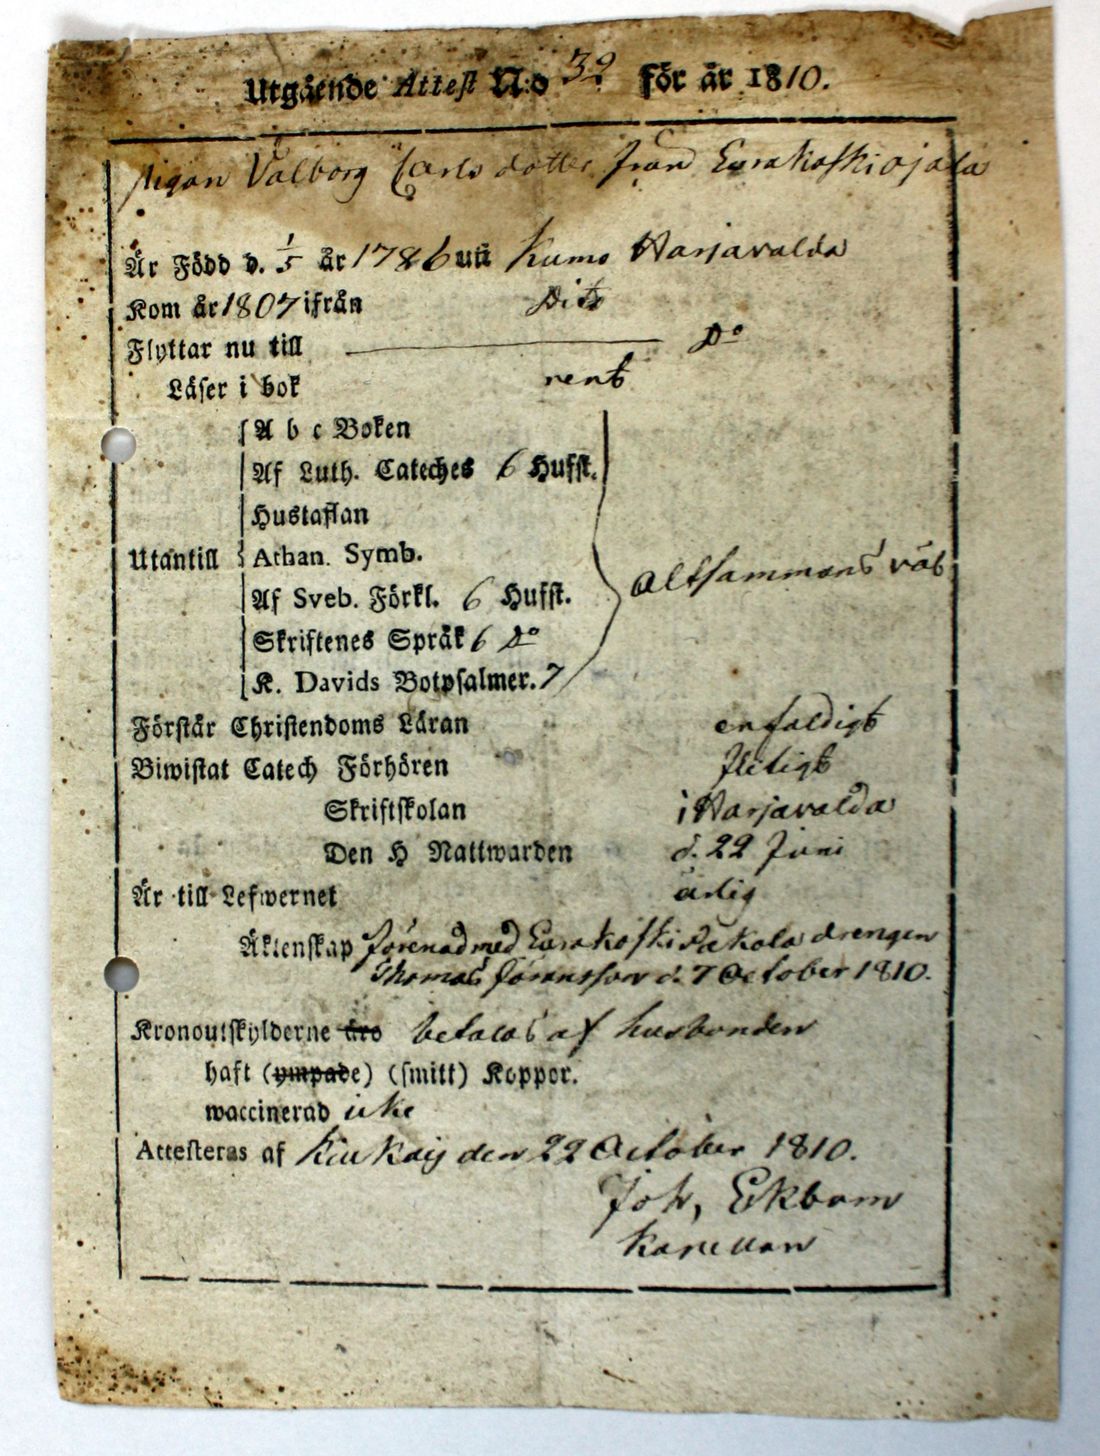 Utgående Attest N:o 32 för år 1810.
Pigan Valborg Carlsdotter från Eurakoski ojala
Är Född d. 1/5 år 1786 uti Kumo Harjavalda
Kom år 1807 ifrån Dito
Flyttar nu till Do
Läser i bok rent
A b c Boken
Af Luth. Cateches 6 Hufst.
Hustaflan
Utantill Athan. Symb. altsammans väl
Af Sveb. Förkl. 6 Hufst.
Skriftenes Språk 6 Do
K. Davids Botpsalmer. 7
Förstår Christendoms Läran enfaldigt
Biwistat Catech Förhören flitigt
Skriftskolan i Harjavalda
Den H Nattwarden d. 22 Juni
Är till Lefwernet ärlig
Äktenskap förenad med Eurakoski drengen
Thomas Göransson d. 7 October 1810.
Kronoutskylderne äro betalas af husbonden
haft (ympade) (smitt) Koppor.
waccinerad icke
Attesteras af Kiukais den 22 October 1810.
Joh, Ekbom